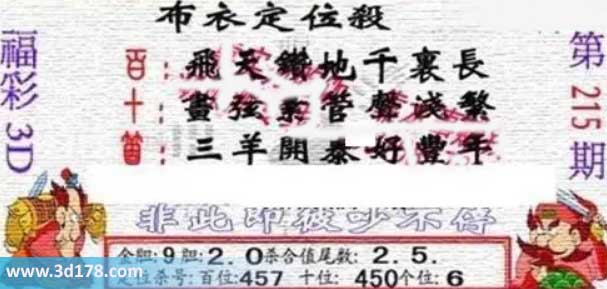 布衣定位殺
福彩3D
第215期
百:飛天鑽地千裏長
十:畫弦索管聲淺繁
個:三羊開泰好豐年
非此即彼吵不停
金胆:9胆:2.0杀合值尾数:2.5.
定位杀号:百位:457 十位:450个位:6
www.3d178.com